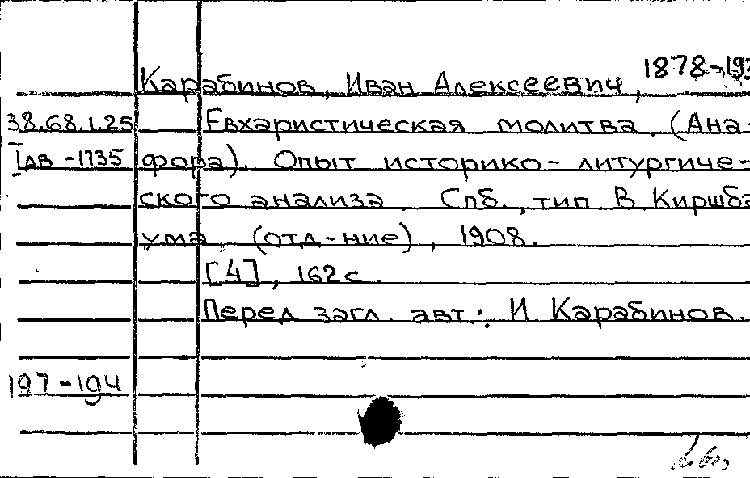 Карабинов, Иван Алексеевич, 1878-193
38.68.1.25 Евхаристическая молитва. (Ана-
Iдв-1735 фора). Опыт историко-литургиче-
ского анализа. Спб., тип В. Киршба
ума (отд-ние), 1908.
[4], 162 с.
Перед загл. авт.: И Карабинов.
197-194